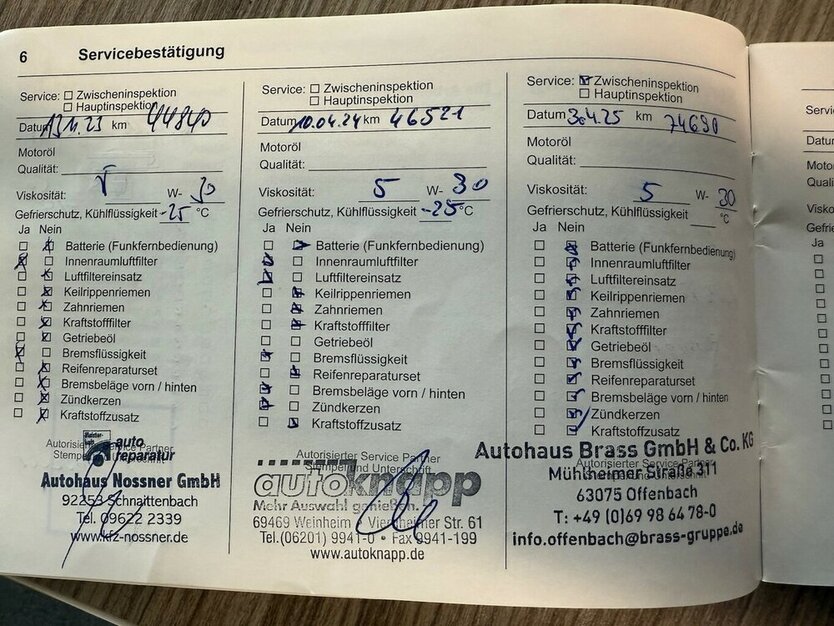 6 Servicebestätigung
Service: Zwischeninspektion
Hauptinspektion
Datum 13.11.23 km 44840
Motoröl
Qualität:
Viskosität: 5 W- 30
Gefrierschutz, Kühlflüssigkeit -25 °C
Ja Nein
Batterie (Funkfernbedienung)
Innenraumluftfilter
Luftfiltereinsatz
Keilrippenriemen
Zahnriemen
Kraftstofffilter
Getriebeöl
Bremsflüssigkeit
Reifenreparaturset
Bremsbeläge vorn / hinten
Zündkerzen
Kraftstoffzusatz
Autorisierter Service Partner
auto
reparatur
Autohaus Nossner GmbH
92253 Schnaittenbach
Tel. 09622 2339
www.kfz-nossner.de
Service: Zwischeninspektion
Hauptinspektion
Datum 10.04.24 km 46521
Motoröl
Qualität:
Viskosität: 5 W- 30
Gefrierschutz, Kühlflüssigkeit -25 °C
Ja Nein
Batterie (Funkfernbedienung)
Innenraumluftfilter
Luftfiltereinsatz
Keilrippenriemen
Zahnriemen
Kraftstofffilter
Getriebeöl
Bremsflüssigkeit
Reifenreparaturset
Bremsbeläge vorn / hinten
Zündkerzen
Kraftstoffzusatz
Autorisierter Service Partner
Stempel und Unterschrift
autoknapp
Mehr Auswahl genießen.
69469 Weinheim • Viernheimer Str. 61
Tel.(06201) 9941-0 • Fax 9941-199
www.autoknapp.de
Service: Zwischeninspektion
Hauptinspektion
Datum 30.4.25 km 74690
Motoröl
Qualität:
Viskosität: 5 W- 30
Gefrierschutz, Kühlflüssigkeit °C
Ja Nein
Batterie (Funkfernbedienung)
Innenraumluftfilter
Luftfiltereinsatz
Keilrippenriemen
Zahnriemen
Kraftstofffilter
Getriebeöl
Bremsflüssigkeit
Reifenreparaturset
Bremsbeläge vorn / hinten
Zündkerzen
Kraftstoffzusatz
Autohaus Brass GmbH & Co. KG
Autorisierter Service Partner
Mühlheimer Straße 311
63075 Offenbach
T: +49 (0)69 98 64 78-0
info.offenbach@brass-gruppe.de